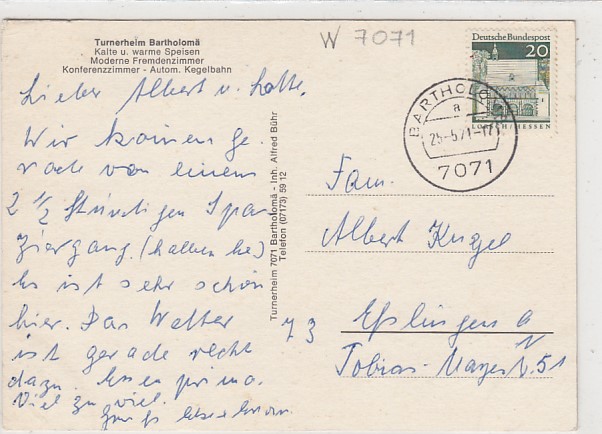 Turnerheim Bartholomä
Kalte u. warme Speisen
Moderne Fremdenzimmer
Konferenzzimmer - Autom. Kegelbahn
W 7071
Deutsche Bundespost
20
LORSCH/HESSEN
BARTHOLO
a
25-5.71-17
7071
Lieber Albert u. Lotte.
Wir kommen ge-
rade von einem
2 1/2 stündigen Spa
ziergang. (halben
Es ist sehr schön
hier. Das Wetter
ist gerade recht
dazu. Essen prima.
Viel zu viel.
Gruß
Turnerheim 7071 Bartholomä - Inh. Alfred Bühr
Telefon (07173) 59 12
Fam.
Albert Kugel
73 Eßlingen a
N
Tobias-Mayerstr. 51